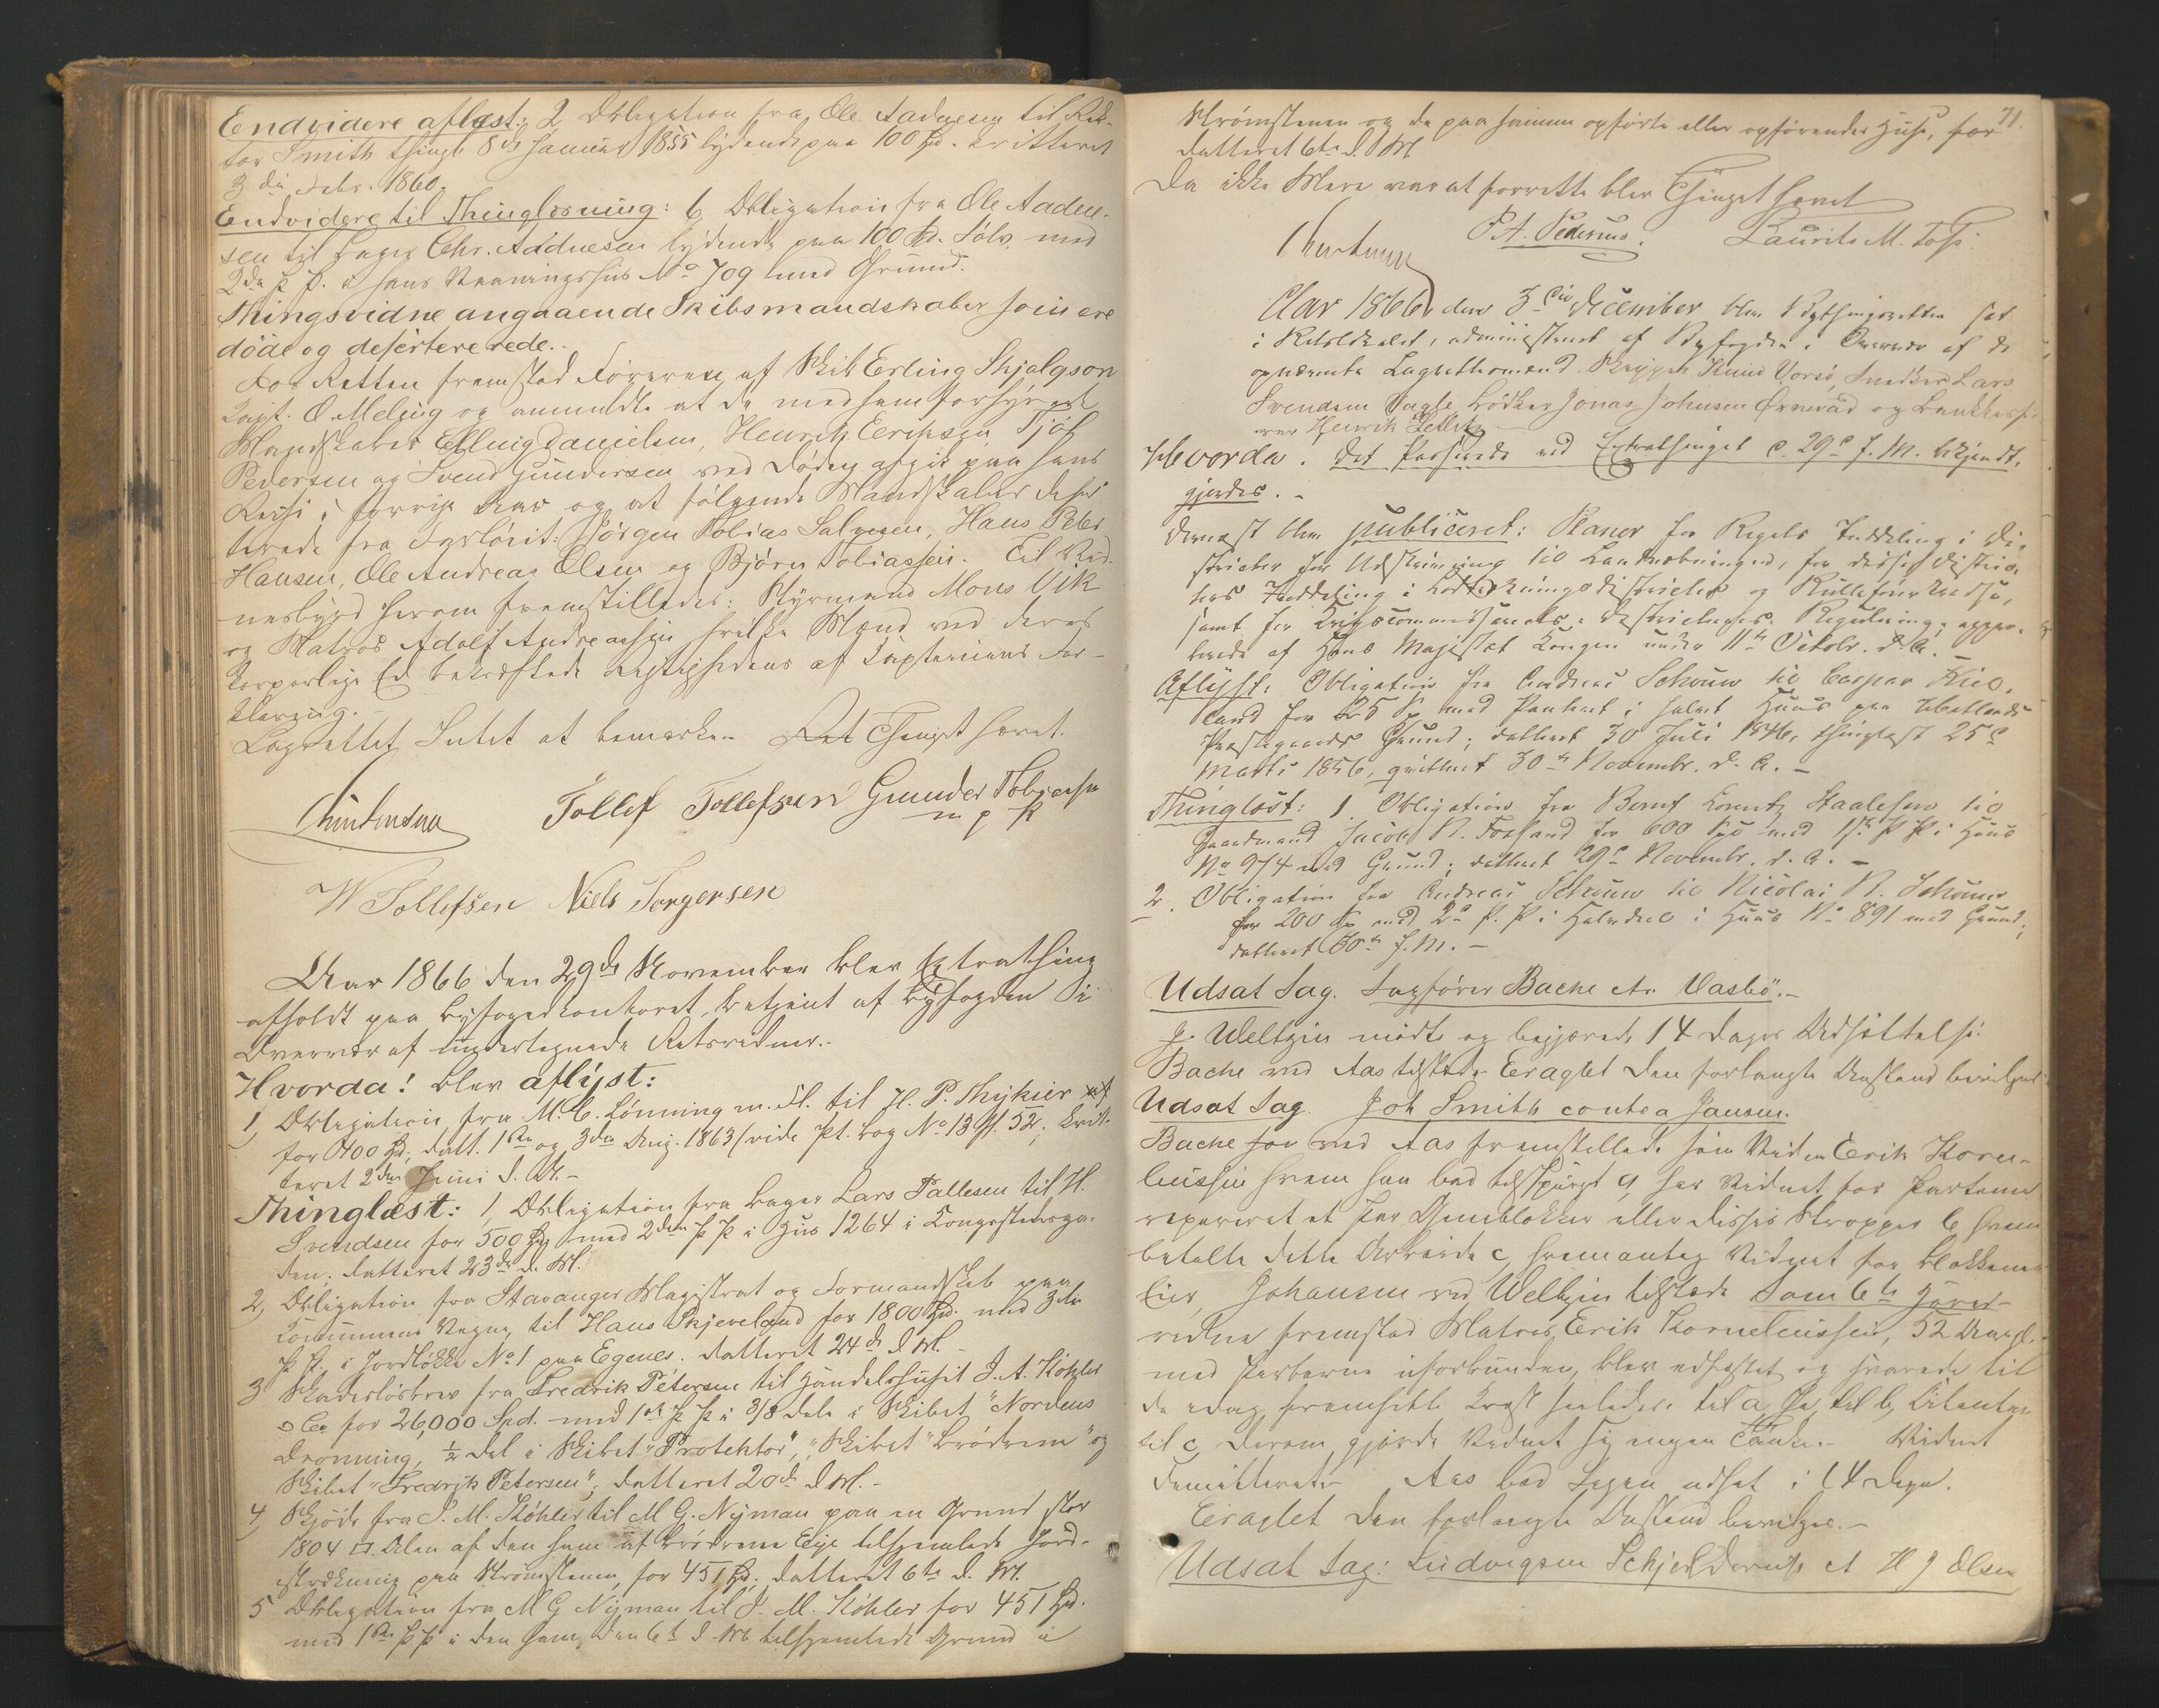 Endvidere aflæst: 2 Obligation fra Ole Aadnesen til Rek-
tor Smith thingl 8de Januar 1855 lydende paa 100 Spd. kvitteret
3die Febr. 1860.
Endvidere til Thinglæsning: 6 Obligation fra Ole Aadne-
sen til Bager Chr. Aadnesen lydende paa 100 Spd. Sølv med
2den P. P. i hans Vaaningshus No 709 med Grund.
Thingsvidne angaaende Skibsmandskaber som ere
döde og desertererede.-
For Retten fremstod Föreren af Skib Erling Skjalgson
Capt. O. Meling og anmeldte at de med ham forhyrede
Mandskaber Elling Danielsen, Henrik Erikson, Tjöl
Pedersen og Svend Gundersen ved Döden afgik paa hans
Reise i forrige Aar og at fölgende Mandskaber deser
terede fra Jørgen Tobias Salvesen, Hans Peter
Hansen, Ole Andreas Olsen og Bjørn Tobiassen. Til Vid-
nesbyrd herom fremstilledes: Styrmand Mons Vik
og Matros Adolf Andreassen hvilke Mænd ved deres
korporlige Ed bekræftede Rigtigheden af Capteinens For-
klaring.-
Lagrettet Intet at bemærke. Ret Thinget hævet.
Christensen Tollef Tollefsen Gunder Tobiassen
m p P
W Tollefsen Niels Torgersen
Aar 1866 den 29de November blev Extrathing
afholdt paa Byfogedkontoret, betjent af Byfogden i
Overvær af undertegnede Retsvidner.-
Hvorda! blev aflyst:
1, Obligation fra M. C. Lönning m. Fl. til H. P. Thykier
for 400 Spd; datt. 1ste og 3die Aug. 1863 (vide Pt. bog No 13 Pl. 52; kvit-
teret 2den Juni d. A.-
Thinglæst: 1, Obligation fra Bager Lars Pallesen til H.
Svendsen for 500 Spd med 2den P P i Hus 1264 i Kongstedsga-
den; datteret 23de d. M.
2, Obligation fra Stavanger Magistrat og Formandskab paa
Kommunens Vegne til Hans Skjeveland for 1800 Spd. med 3die
P P. i Jordlökke No 1 paa Egenes. datteret 24de d M.
3 Skadeslösbrev fra Fredrik Petersen til Handelshuset J. A. Köhler
& Co for 26,000 Spd. med 1ste P P i 3/8 dele i Skibet "Nordens
Dronning, ½ del i Skibet "Protektor", "Skibet "Brödrene" og
Skibet "Fredrik Petersen"; datteret 20de d M.-
4, Skjöde fra J. M. Köhler til M G. Nyman paa en Grund stor
1804 □ Alen af den ham af Brödrene Eije tilhjemlede Jord-
strækning paa Strömstenen, for 451 Spd; datteret 6te d. M.
5 Obligation fra M G Nyman til J. M. Köhler for 451 Spd.
med 1ste P P i den ham den 6te d M tilhjemlede Grund i
71.
Strömstenen og de paa samme opförte eller opförendes Huse, for
datteret 6te d. M
Da ikke Mere var at forrette blev Thinget hævet
Christensen P. A. Pedersen. Laurits M. Toft
Aar 1866, den 3die December blev Bythingsretten sat
i Retslokalet, administreret af Byfogden i Overvær af de
opnævnte Lagrettemænd Knud Vorsö, Snedker Lars
Svendsen Vagle, Bödker Jonas Johnsen Ørnevad og
Henrik
Hvorda. Det Passerede ved Extrathinget d. 29de f. M. bekjendt-
gjordes.-
Dernæst blev publiceret: Planer for Rigets Inddeling i Di-
stricter for Udskrivning til Landvæbningen, for disse Distric-
ters Inddeling i Lodtrækningsdistricter og Rulleförerkredse,
samt for Krigscommissariats-Districternes Regulering, appro-
berede af Hans Majestæt Kongen under 11te Octobr. d. A.-
Aflyst: Obligation fra Andreas Schouw til Caspar Kiel-
land for 25 Sp med Panteret i halvt Huus paa Hetlands
Præstegaards Grund; datteret 30 Juli 1846, thinglæst 25de
Marts 1856, quitteret 30te Novembr. d. A.-
Thinglæst: 1. Obligation fra Bernt Lorentz Staalesen til
Gaardmand Jacob R. Fossand for 600 Spd med 1ste P P i Huus
No 974 med Grund; datteret 29de Novembr. d. A.-
2. Obligation fra Andreas Schouw til Nicolai R. Schouw
for 200 Sp med 2de P. P i Halvdeel i Huus No 891 med Grund;
datteret 30te f. M.-
Udsat Sag. Sagförer Bache ctr. Vasbö.-
J. Weltzin mödte og begjærede 14 Dages Udsættelse.
Bache ved Aas tilstede. Eragtet den forlangte Anstand bevilges
Udsat Sag. Joh Smith contra Jansen.
Bache for ved Aas fremstillede som Vidne Erik Korne-
liussen hvem han bad tilspurgt a, har Vidnet for Parterne
repareret et Par Gjenblokker eller disses Stropper b, hvem
betalte dette Arbeide c, hvem antog Vidnet for Blokkenes
Eier, Johansen ved Weltzin tilstede. Som 6te Hoved-
vidne fremstod Matros Erik Korneliussen, 52 Aar gl.
med Parterne uforbunden, blev edfæstet og svarede til
de idag fremsatte Qvæst saaledes: til a Ja, til b, Citanten
til c, derom gjorde Vidnet sig ingen Tanke.- Vidnet
demitteret. Aas bad Sagen udsat i 14 Dage.
Eragtet den forlangte Anstand bevilges.-
Udsat Sag: Ludvigsen Schjelderup ct H J Olsen